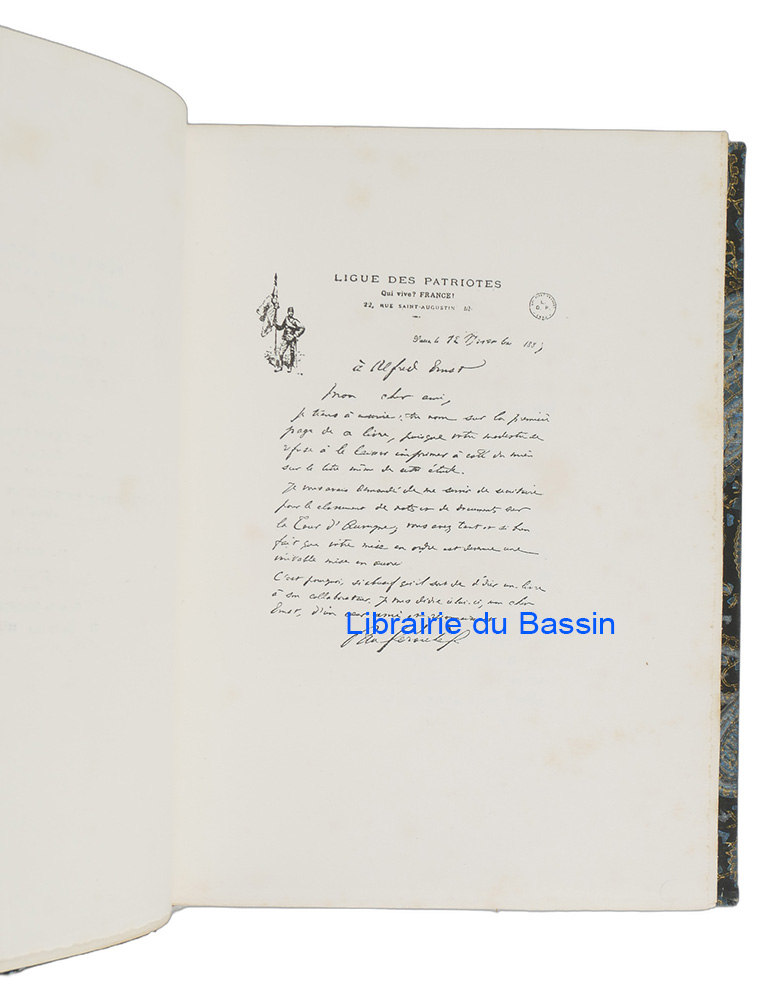 LIGUE DES PATRIOTES
Qui vive? FRANCE!
22, RUE SAINT-AUGUSTIN 22
L.
D. P.
à Alfred Ernst
Mon cher ami,
je tiens à inscrire votre nom sur la première
page de ce livre, puisque votre modestie se
refuse à le laisser imprimer à côté du mien
sur le titre même de cette étude.
Je vous avais demandé de me servir de secrétaire
pour le classement de notes et de documents sur
la Tour d'Auvergne, vous avez tant et si bien
fait que votre mise en ordre est devenue une
véritable mise en œuvre
C'est pourquoi, si excessif qu'il soit de dédier un livre
à son collaborateur, je vous dédie celui-ci, mon cher
Ernst, d'un cœur ami et
Librairie du Bassin